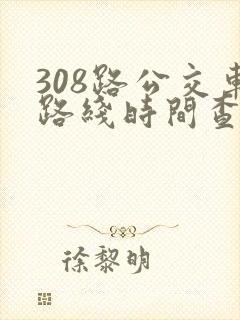 308路公交車
路綫時間查
徐黎明